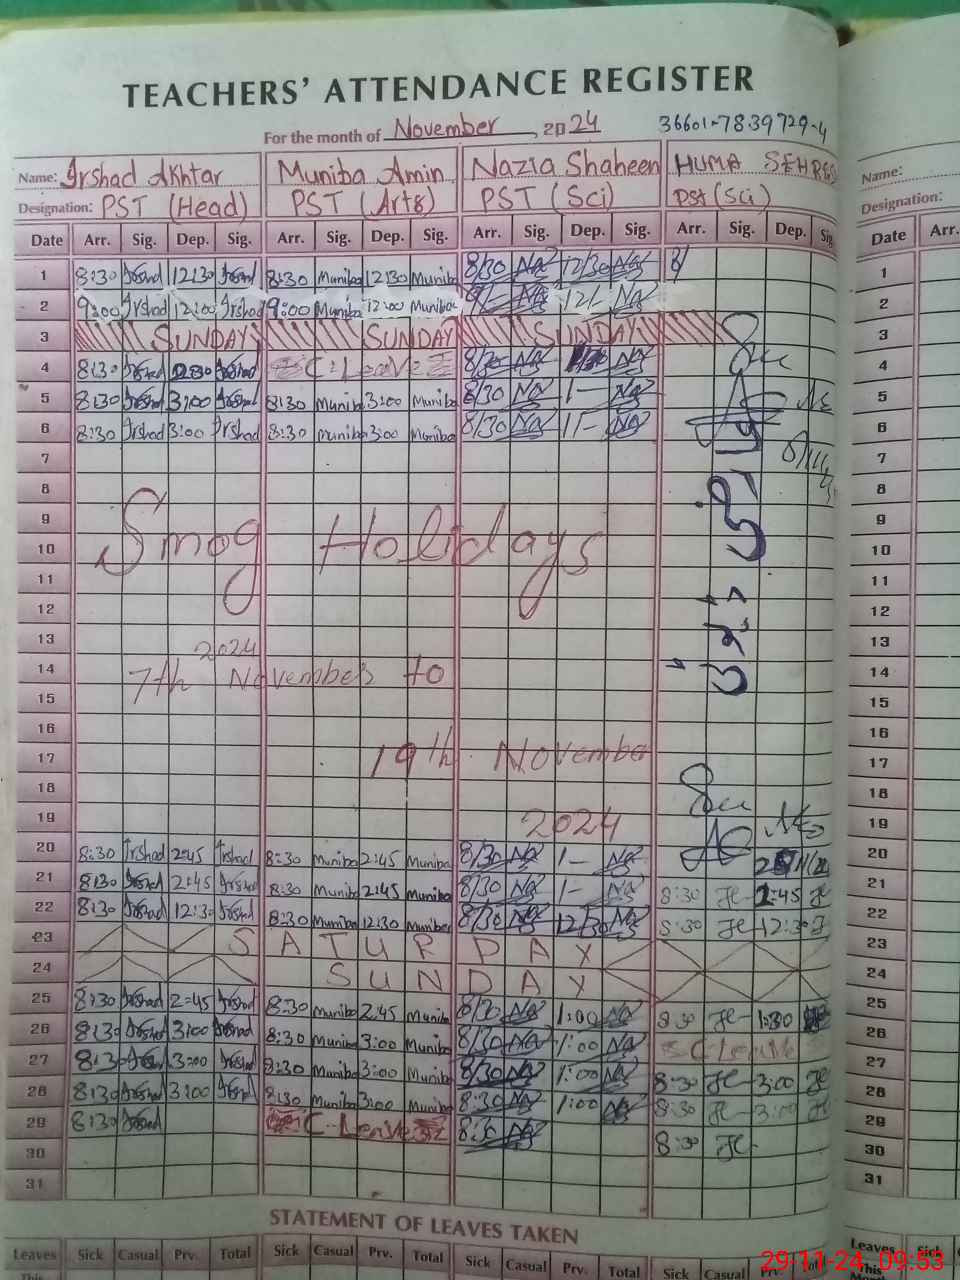 TEACHERS' ATTENDANCE REGISTER
For the month of November, 2024 36601-7839729-4
Name: Irshad Akhtar Muniba Amin Nazia Shaheen HUMA SEHRE Name:
Designation: PST (Head) PST (Arts) PST (Sci) PST (Sci) Designation:
Date Arr. Sig. Dep. Sig. Arr. Sig. Dep. Sig. Arr. Sig. Dep. Sig. Arr. Sig. Dep. Sig Date Arr.
1 8:30 Irshad 12:30 Irshad 8:30 Muniba 12:30 Muniba 8/30 Na 12/30 Na 1
2 9:00 Irshad 12:00 Irshad 9:00 Muniba 12:00 Muniba 9/- Na 12/- Na 2
3 SUNDAY SUNDAY SUNDAY 3
4 8:30 Irshad Irshad C-Leave 8/30 Na Na 4
5 8:30 Irshad 3:00 Irshad 8:30 Muniba 3:00 Muniba 8/30 Na 1- Na 5
6 8:30 Irshad 3:00 Irshad 8:30 Muniba 3:00 Muniba 8/30 Na 1- Na 6
7 7
8 8
9 9
10 Smog Holidays 10
11 11
12 12
13 2024 13
14 7th November to 14
15 15
16 16
17 19th November 17
18 18
19 2024 19
20 8:30 Irshad 2:45 Irshad 8:30 Muniba 2:45 Muniba 8/30 Na 1- Na 20
21 8:30 Irshad 2:45 Irshad 8:30 Muniba 2:45 Muniba 8/30 Na 1- Na 8:30 2:45 21
22 8:30 Irshad 12:30 Irshad 8:30 Muniba 12:30 Muniba 8/30 Na 12/30 Na 8:30 12:30 22
23 SATURDAY 23
24 SUNDAY 24
25 8:30 Irshad 2:45 Irshad 8:30 Muniba 2:45 Muniba 8/30 Na 1:00 Na 8:30 1:30 25
26 8:30 Irshad 3:00 Irshad 8:30 Muniba 3:00 Muniba 8/30 Na 1:00 Na C-Leave 26
27 8:30 Irshad 3:00 Irshad 8:30 Muniba 3:00 Muniba 8/30 Na 1:00 Na 8:30 3:00 27
28 8:30 Irshad 3:00 Irshad 8:30 Muniba 3:00 Muniba 8:30 Na 1:00 Na 8:30 3:00 28
29 8:30 Irshad C-Leave 8:30 Na 8:30 29
30 30
31 31
STATEMENT OF LEAVES TAKEN
Leaves Sick Casual Prv. Total Sick Casual Prv. Total Sick Casual Prv. Total Sick Casual Prv. Leaves Sick
This This
29-11-24 09:53